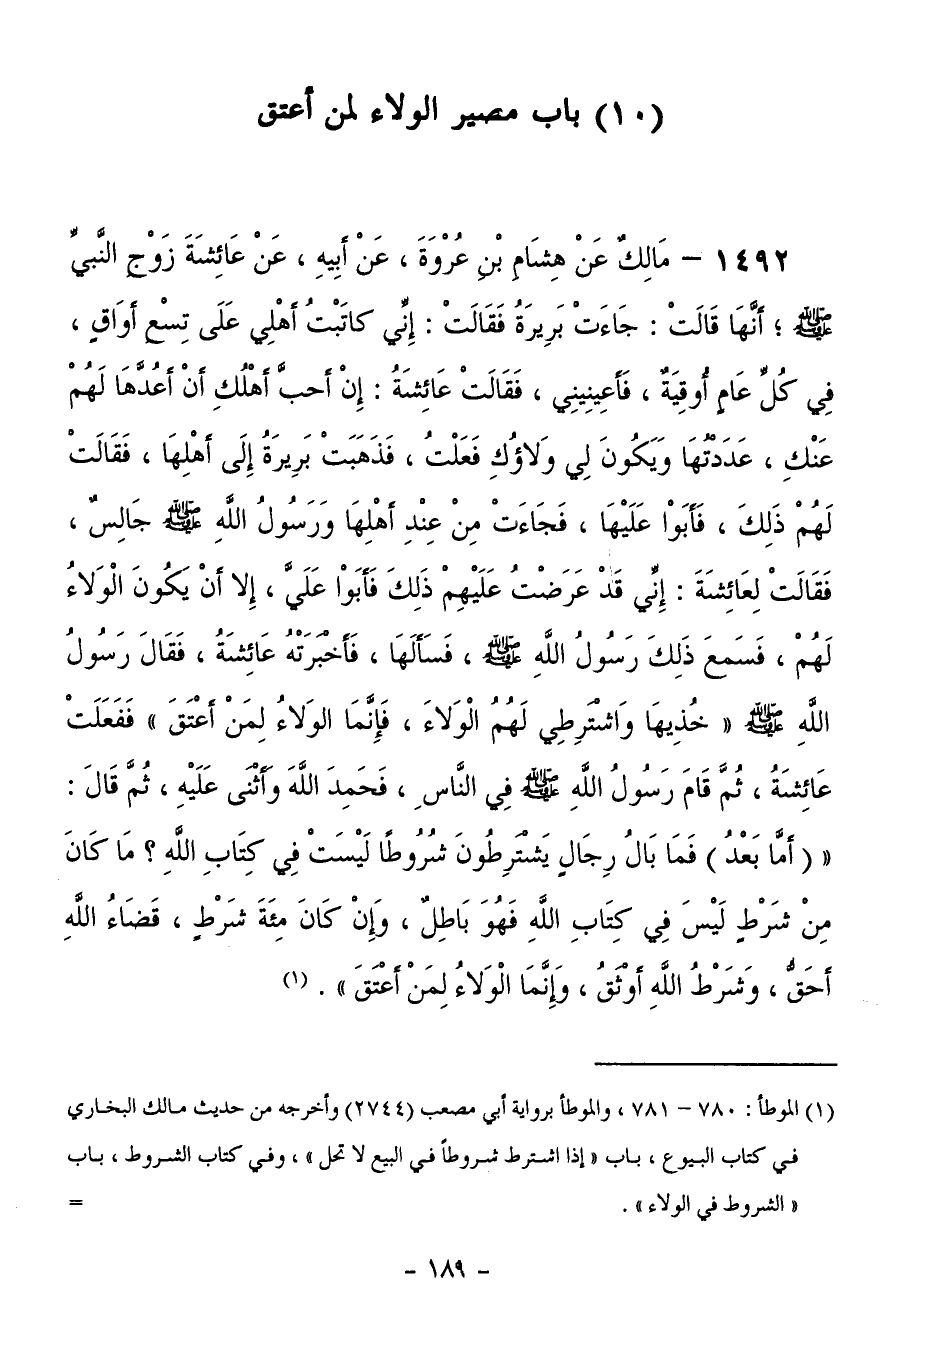 (١٠) باب مصير الولاء لمن أعتق
١٤٩٢ – مَالِكٌ عَنْ هِشَامِ بْنِ عُرْوَةَ ، عَنْ أَبِيهِ ، عَنْ عَائِشَةَ زَوْجِ النَّبِيِّ
ﷺ ؛ أَنَّهَا قَالَتْ : جَاءَتْ بَرِيرَةُ فَقَالَتْ : إِنِّي كَاتَبْتُ أَهْلِي عَلَى تِسْعِ أَوَاقٍ ،
فِي كُلِّ عَامٍ أُوقِيَةٌ ، فَأَعِينِينِي ، فَقَالَتْ عَائِشَةُ : إِنْ أَحبَّ أَهْلُكِ أَنْ أَعُدَّهَا لَهُمْ
عَنْكِ ، عَدَدْتُهَا وَيَكُونَ لِي وَلاؤُكِ فَعَلْتُ ، فَذَهَبَتْ بَرِيرَةُ إِلَى أَهْلِهَا ، فَقَالَتْ
لَهُمْ ذَلِكَ ، فَأَبَوْا عَلَيْهَا ، فَجَاءَتْ مِنْ عِنْدِ أَهْلِهَا وَرَسُولُ اللَّهِ ﷺ جَالِسٌ ،
فَقَالَتْ لِعَائِشَةَ : إِنِّي قَدْ عَرَضْتُ عَلَيْهِمْ ذَلِكَ فَأَبَوْا عَلَيَّ ، إِلا أَنْ يَكُونَ الْوَلاءُ
لَهُمْ ، فَسَمِعَ ذَلِكَ رَسُولُ اللَّهِ ﷺ ، فَسَأَلَهَا ، فَأَخْبَرَتْهُ عَائِشَةُ ، فَقَالَ رَسُولُ
اللَّهِ ﷺ « خُذِيهَا وَاشْتَرِطِي لَهُمُ الْوَلاءَ ، فَإِنَّمَا الوَلاءُ لِمَنْ أَعْتَقَ » فَفَعَلَتْ
عَائِشَةُ ، ثُمَّ قَامَ رَسُولُ اللَّهِ ﷺ فِي النَّاسِ ، فَحَمِدَ اللَّهَ وَأَثْنَى عَلَيْهِ ، ثُمَّ قَالَ :
« ( أَمَّا بَعْدُ ) فَمَا بَالُ رِجَالٍ يَشْتَرِطُونَ شُرُوطًا لَيْسَتْ فِي كِتَابِ اللَّهِ ؟ مَا كَانَ
مِنْ شَرْطٍ لَيْسَ فِي كِتَابِ اللَّهِ فَهُوَ بَاطِلٌ ، وَإِنْ كَانَ مِئَةَ شَرْطٍ ، قَضَاءُ اللَّهِ
أَحَقُّ ، وَشَرْطُ اللَّهِ أَوْثَقُ ، وَإِنَّمَا الْوَلاءُ لِمَنْ أَعْتَقَ » . (١)
(١) الموطأ : ٧٨٠ – ٧٨١ ، والموطأ برواية أبي مصعب (٢٧٤٤) وأخرجه من حديث مالك البخاري
في كتاب البيوع ، باب « إذا اشترط شروطاً في البيع لا تحل » ، وفي كتاب الشروط ، باب
« الشروط في الولاء » . =
- ١٨٩ -